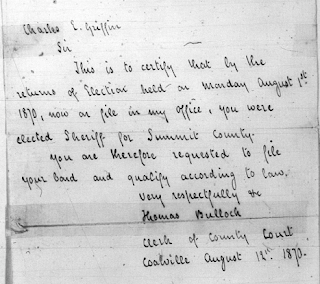 Charles E. Griffin
Sir
This is to certify that by the
returns of Election held on Monday August 1st
1870, now on file in my office, you were
elected Sheriff for Summit County.
You are therefore requested to file
your bond and qualify according to law.
Very respectfully &c
Thomas Bullock
Clerk of County Court
Coalville August 12th. 1870.